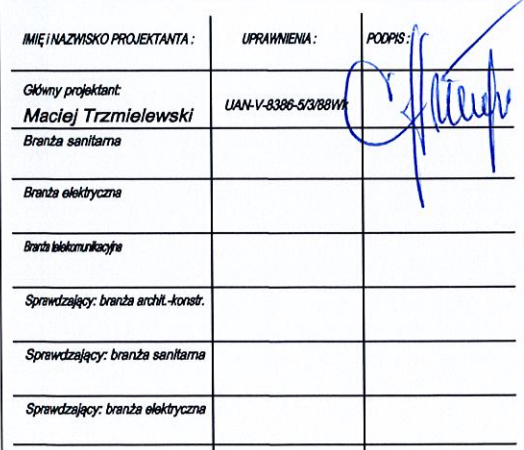 IMIĘ i NAZWISKO PROJEKTANTA : UPRAWNIENIA : PODPIS :
Główny projektant:
Maciej Trzmielewski UAN-V-8386-5/3/88Wk
Branża sanitarna
Branża elektryczna
Branża telekomunikacyjna
Sprawdzający: branża archit.-konstr.
Sprawdzający: branża sanitarna
Sprawdzający: branża elektryczna